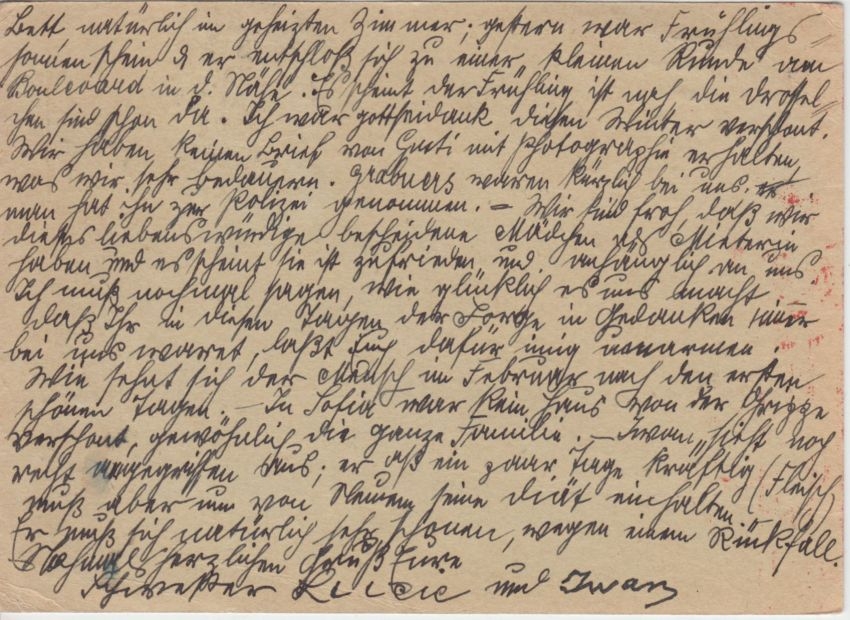 Bett natürlich im geheizten Zimmer; gestern war Frühlings-
sonnenschein & er entschloß sich zu einer kleinen Runde am
Boulevard in d. Nähe. Es scheint der Frühling ist nah die Drossel-
chen sind schon da. Ich war gottseidank diesen Winter verschont.
Wir haben keinen Brief von mit Photographie erhalten,
was wir sehr bedauern. Grabners waren kürzlich bei uns.
man hat ihn zur Polizei genommen. – Wir sind froh, daß wir
dieses liebenswürdige bescheidene Mädchen als Mieterin
haben und es scheint sie ist zufrieden und anhänglich an uns.
Ich muß nochmal sagen, wie glücklich es uns macht
daß Ihr in diesen Tagen der Sorge in Gedanken immer
bei uns waret, laßt Euch dafür innig umarmen.
Wie sehnt sich der Mensch im Februar nach den ersten
schönen Tagen. – In Sofia war kein Haus von der Grippe
verschont, gewöhnlich die ganze Familie. – Iwan sieht noch
recht angegriffen aus; er aß ein paar Tage kräftig (Fleisch)
muß aber nun von Neuem seine Diät einhalten.
Er muß sich natürlich sehr schonen, wegen einem Rückfall.
Nochmals herzlichen Gruß Eure
Schwester Lucie und Iwan